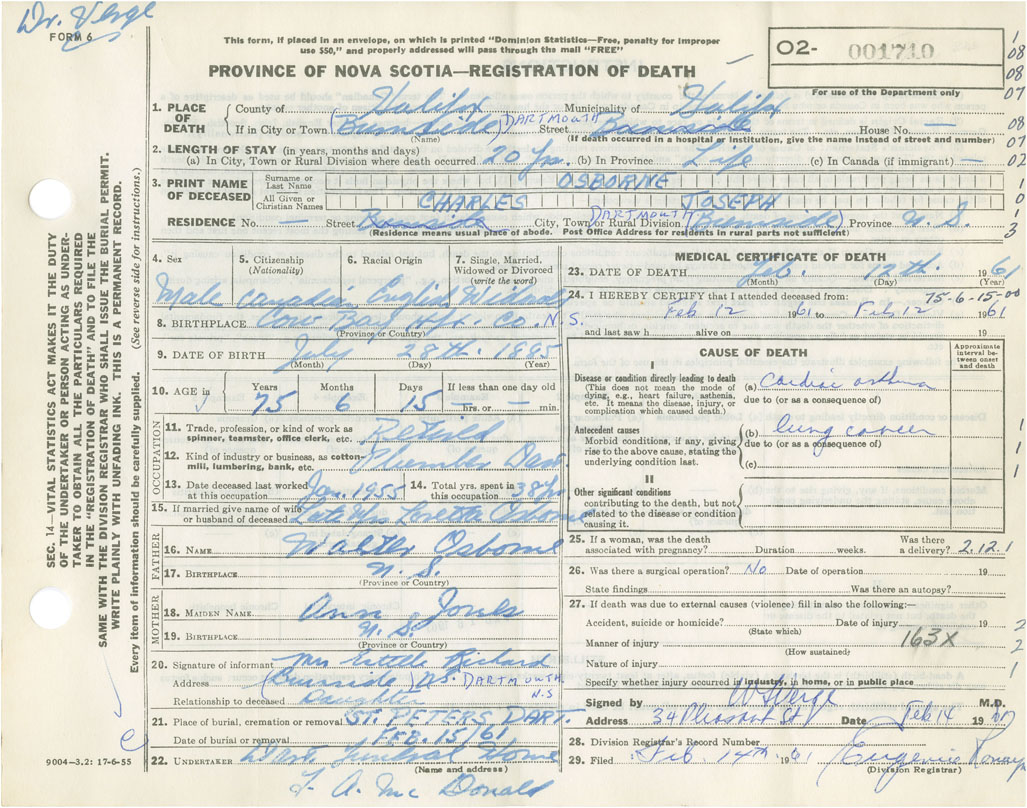 Dr. Verge
FORM 6
This form, if placed in an envelope, on which is printed "Dominion Statistics—Free, penalty for improper
use $50," and properly addressed will pass through the mail "FREE"
PROVINCE OF NOVA SCOTIA—REGISTRATION OF DEATH
02- 001710
For use of the Department only
1 08 08 07 08 07 02 1 0 1 3
1. PLACE OF DEATH
County of Halifax Municipality of Halifax
If in City or Town (Burnside) DARTMOUTH Street Burnside House No. —
(Name) (If death occurred in a hospital or institution, give the name instead of street and number)
2. LENGTH OF STAY (in years, months and days)
(a) In City, Town or Rural Division where death occurred 20 Yrs. (b) In Province Life (c) In Canada (if immigrant) —
3. PRINT NAME OF DECEASED
Surname or Last Name OSBORNE
All Given or Christian Names CHARLES JOSEPH
RESIDENCE No. — Street Burnside City, Town or Rural Division DARTMOUTH (Burnside) Province N.S.
(Residence means usual place of abode. Post Office Address for residents in rural parts not sufficient)
4. Sex 5. Citizenship (Nationality) 6. Racial Origin 7. Single, Married, Widowed or Divorced (write the word)
Male Canadian English Widowed
8. BIRTHPLACE Cow Bay Hfx. Co. N.S.
(Province or Country)
9. DATE OF BIRTH July 28th. 1885
(Month) (Day) (Year)
10. AGE in Years Months Days If less than one day old
75 6 15 hrs. or — min.
OCCUPATION
11. Trade, profession, or kind of work as spinner, teamster, office clerk, etc. Retired
12. Kind of industry or business, as cotton-mill, lumbering, bank, etc. Plumber Dart.
13. Date deceased last worked at this occupation Jan. 1955 14. Total yrs. spent in this occupation 38 Yrs.
15. If married give name of wife or husband of deceased Late Mrs Loretta Osborne
FATHER
16. NAME Walter Osborne
17. BIRTHPLACE N.S.
(Province or Country)
MOTHER
18. MAIDEN NAME. Ann Jones
19. BIRTHPLACE N.S.
(Province or Country)
20. Signature of informant Mrs Richard
Address (Burnside) N.S. DARTMOUTH N.S
Relationship to deceased Daughter
21. Place of burial, cremation or removal ST. PETERS, DART.
Date of burial or removal FEB. 15/61
22. UNDERTAKER Dart. Funeral Home
(Name and address)
J. A. Mc Donald
9004—3.2: 17-6-55
MEDICAL CERTIFICATE OF DEATH
23. DATE OF DEATH Feb. 12th. 1961
(Month) (Day) (Year)
24. I HEREBY CERTIFY that I attended deceased from: 75-6-15-00
Feb 12 1961 to Feb 12 1961
and last saw h alive on 19
CAUSE OF DEATH
Approximate interval between onset and death
I
Disease or condition directly leading to death
(This does not mean the mode of dying, e.g., heart failure, asthenia, etc. It means the disease, injury, or complication which caused death.)
(a) Cardiac asthma
due to (or as a consequence of)
Antecedent causes
Morbid conditions, if any, giving rise to the above cause, stating the underlying condition last.
(b) lung cancer
due to (or as a consequence of)
(c)
1
1
1
II
Other significant conditions
contributing to the death, but not related to the disease or condition causing it.
25. If a woman, was the death associated with pregnancy? Duration weeks. Was there a delivery? 2.12.1
26. Was there a surgical operation? No Date of operation 19
State findings Was there an autopsy?
27. If death was due to external causes (violence) fill in also the following:—
Accident, suicide or homicide? Date of injury 19 2
(State which)
Manner of injury 163X 2
(How sustained)
Nature of injury 1
Specify whether injury occurred in industry, in home, or in public place
Signed by W Verge M.D.
Address 34 Pleasant St Date Feb 14 19
28. Division Registrar's Record Number
29. Filed Feb. 14th 1961 Eugenie
(Division Registrar)
SEC. 14—VITAL STATISTICS ACT MAKES IT THE DUTY
OF THE UNDERTAKER OR PERSON ACTING AS UNDER-
TAKER TO OBTAIN ALL THE PARTICULARS REQUIRED
IN THE "REGISTRATION OF DEATH" AND TO FILE THE
SAME WITH THE DIVISION REGISTRAR WHO SHALL ISSUE THE BURIAL PERMIT.
WRITE PLAINLY WITH UNFADING INK. THIS IS A PERMANENT RECORD.
Every item of information should be carefully supplied. (See reverse side for instructions.)